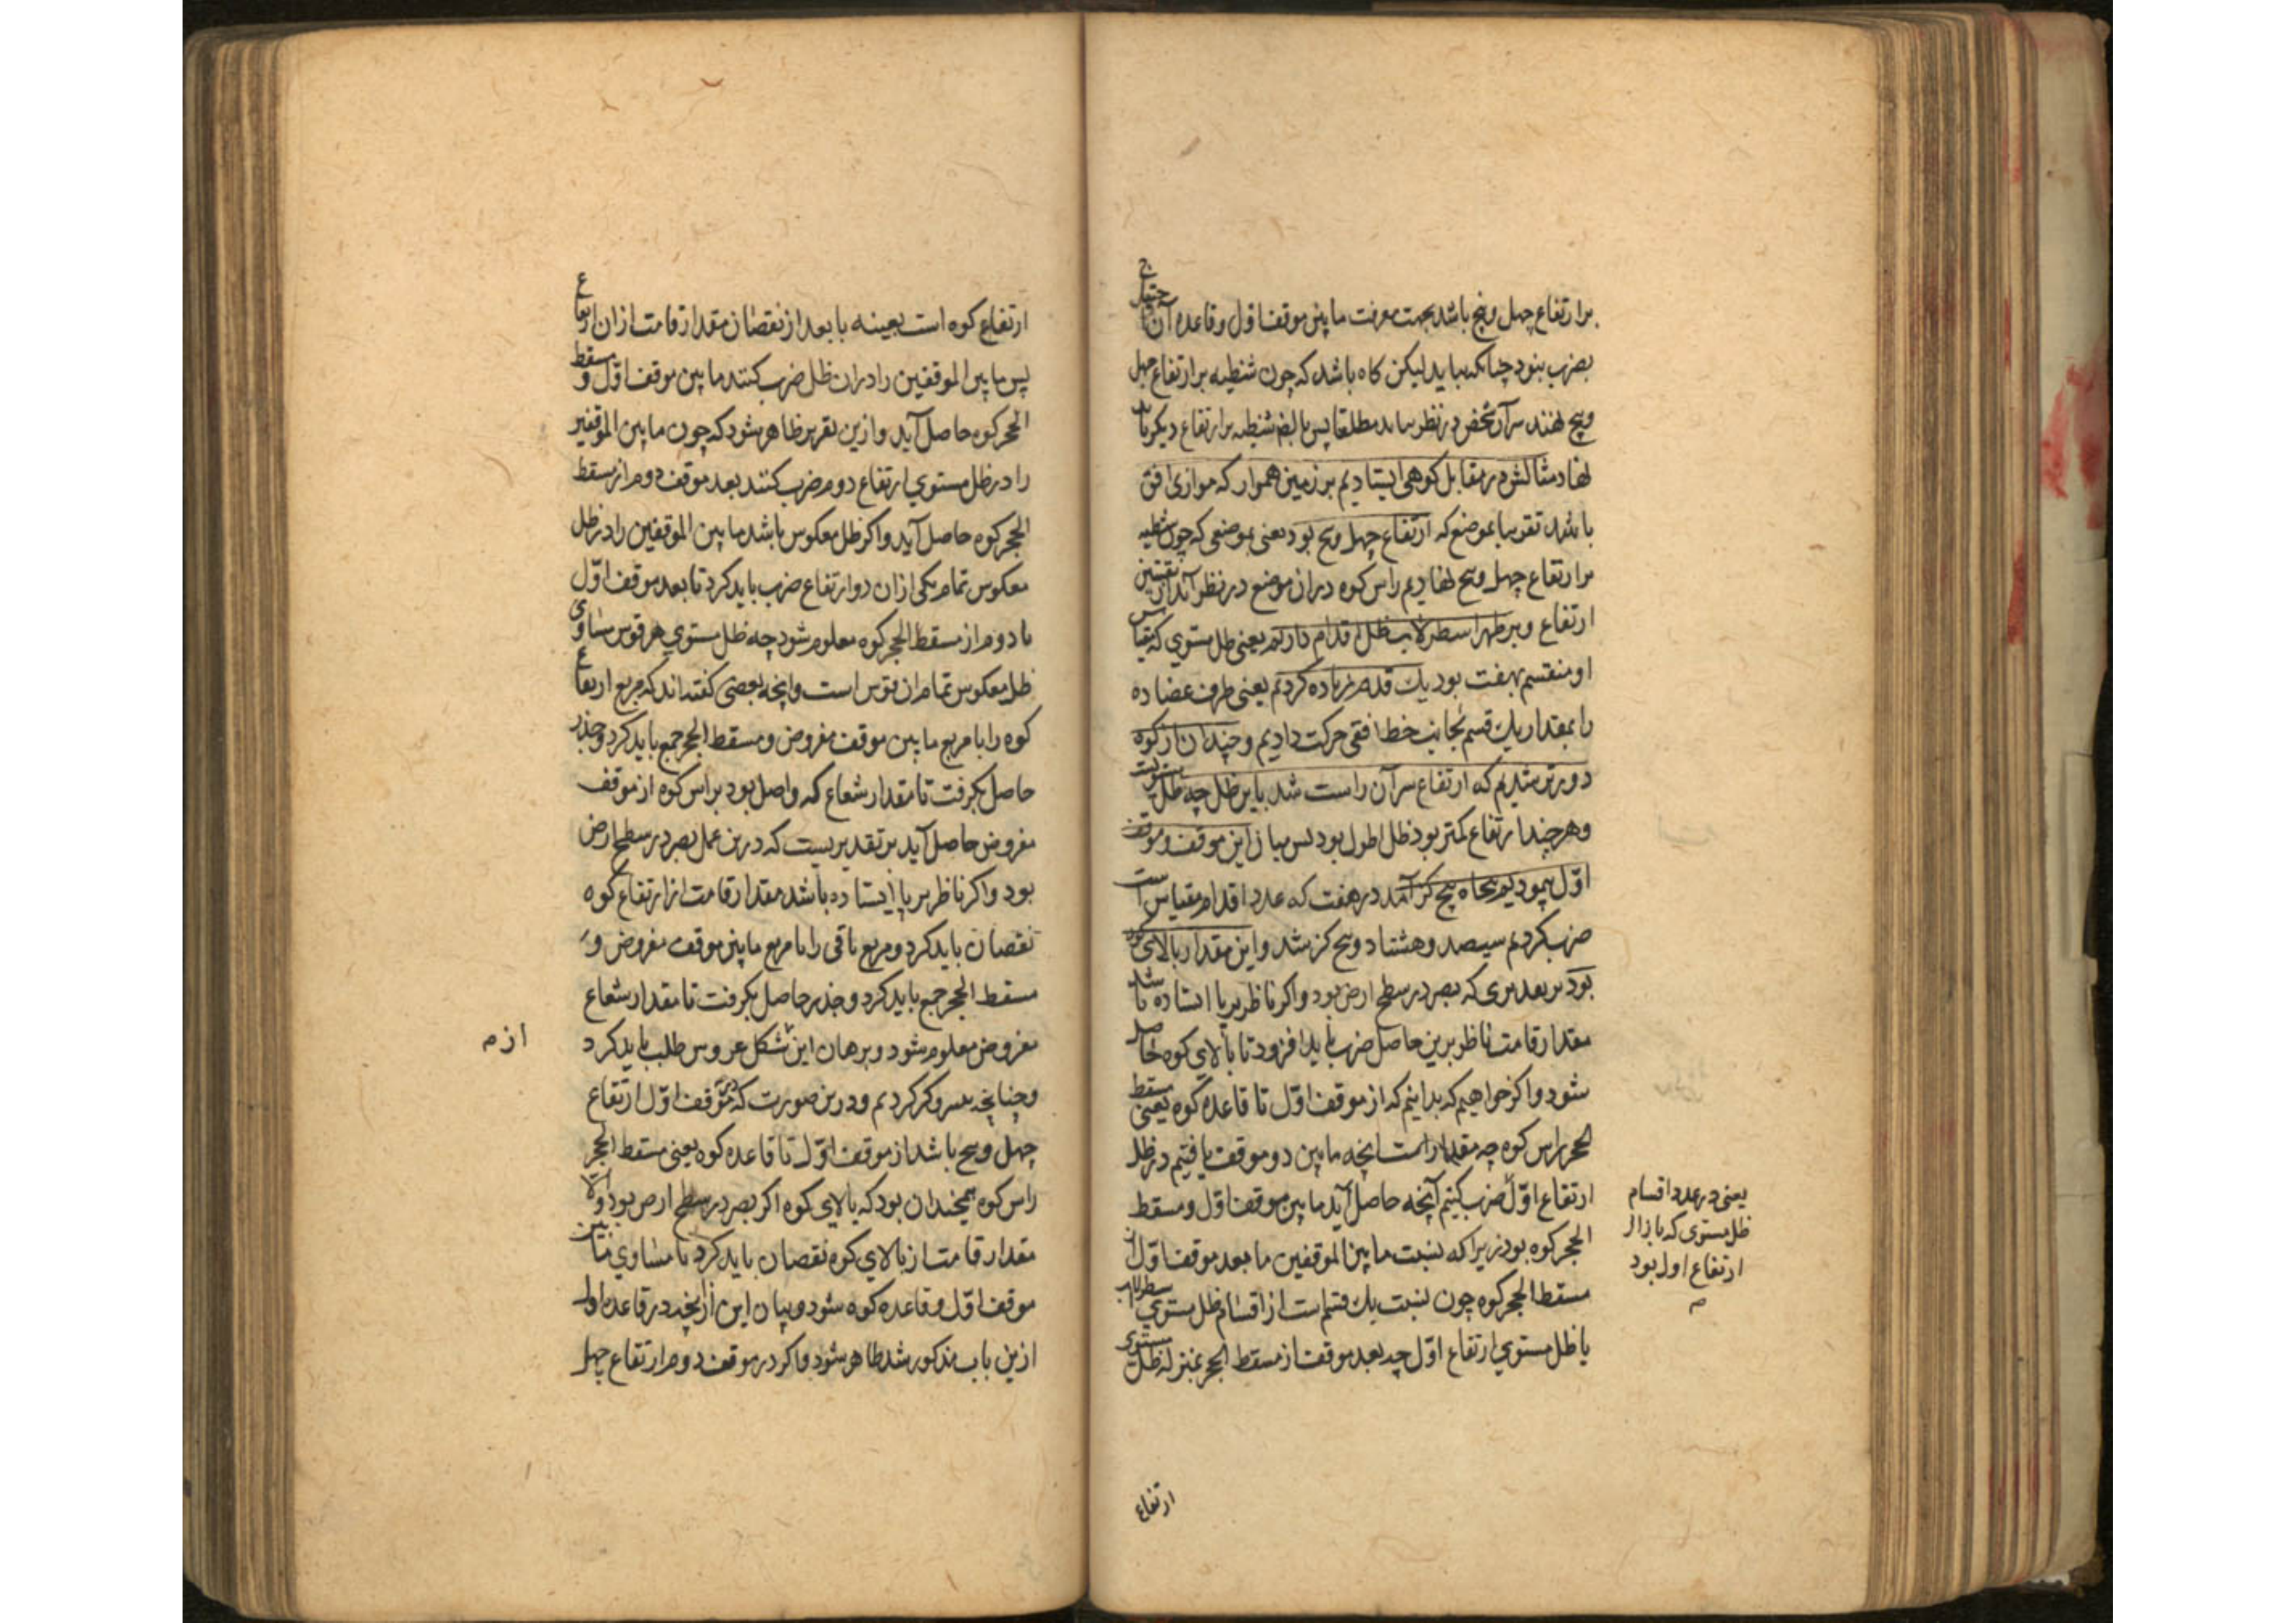 بر ارتفاع چهل و پنج باشد بجهت معرفت ما بین موقف اول و قاعده آن احتیاج
بضرب بنود چنانکه بیاید لیکن کاه باشد که چون شظیه بر ارتفاع چهل
و پنج نهند سر آن شخص در نظر نیاید مطلقا پس بالضر شظیه بر ارتفاع دیکر باید
نهاد مثالش در مقابل کوهی ایستادیم بر زمین هموار که موازی افق
باشد تقریبا بموضع که ارتفاع چهل و پنج بود یعنی بموضعی که چون شظیه
بر ارتفاع چهل و پنج نهادیم راس کوه در ان موضع در نظر آید از ثقبتین
ارتفاع و بر ظهر اسطرلاب ظل اقدام داریم یعنی ظل مستوی که مقیاس
او منقسم بهفت بود یک قدم زیاده کردیم یعنی طرف عضاده
را بمقدار یک قسم بجانب خط افقی حرکت دادیم و چندان از کوه
دورتر شدیم که ارتفاع سر آن راست شد باین ظل چه ظل مستویست
و هر چند ارتفاع کمتر بود ظل اطول بود پس میان این موقف و موقف
اول پیمودیم پنجاه پنج کز آمد در هفت که عدد اقدام مقیاس است
ضرب کردیم سیصد و هشتاد و پنج کز شد و این مقدار بالای کوه
بود بر بعد مری که بصر در سطح ارض بود و اکر ناظر بر پا ایستاده باشد
مقدار قامت ناظر برین حاصل ضرب باید افزود تا بالای کوه حاصل
شود و اکر خواهیم که بدانیم که از موقف اول تا قاعده کوه یعنی مسقط
حجر راس کوه چه مقدار است انچه ما بین دو موقف یافتیم در ظل
ارتفاع اول ضرب کنیم آنچه حاصل آید ما بین موقف اول و مسقط
الحجر کوه بود زیرا که نسبت ما بین الموقفین ما بعد موقف اول از
مسقط الحجر کوه چون نسبت یک قسم است از اقسام ظل مستوی اسطرلاب
یا ظل مستوی ارتفاع اول چه بعد موقف از مسقط الحجر بمنزله ظل مستوی
یعنی در عدد اقسام
ظل مستوی که بازاء
ارتفاع اول بود
ارتفاع
ارتفاع کوه است بعینه یا بعد از نقصان مقدار قامت از ان ارتفاع
پس ما بین الموقفین را در ان ظل ضرب کنند ما بین موقف اول و مسقط
الحجر کوه حاصل آید و ازین تقریر ظاهر شود که چون ما بین الموقفین
را در ظل مستوی ارتفاع دوم ضرب کنند بعد موقف دوم از مسقط
الحجر کوه حاصل آید و اکر ظل معکوس باشد ما بین الموقفین را در ظل
معکوس تمام یکی ازان دو ارتفاع ضرب باید کرد تا بعد موقف اول
یا دوم از مسقط الحجر کوه معلوم شود چه ظل مستوی هر قوس مساوی
ظل معکوس تمام ان قوس است و انچه بعضی کفته اند که مربع ارتفاع
کوه را با مربع ما بین موقف مفروض و مسقط الحجر جمع باید کرد و جذر
حاصل بکرفت تا مقدار شعاع که واصل بود براس کوه از موقف
مفروض حاصل آید بر تقدیریست که درین عمل بصر در سطح ارض
بود و اکر ناظر بر پا ایستاده باشد مقدار قامت از ارتفاع کوه
نقصان باید کرد و مربع باقی را با مربع ما بین موقف مفروض و
مسقط الحجر جمع باید کرد و جذر حاصل بکرفت تا مقدار شعاع
مفروض معلوم شود و برهان این شکل عروس طلب باید کرد
و چنانچه کردیم و درین صورت که در موقف اول ارتفاع
چهل و پنج باشد از موقف اول تا قاعده کوه یعنی مسقط الحجر
راس کوه همچندان بود که بالای کوه اکر بصر در سطح ارض بود و الا
مقدار قامت از بالای کوه نقصان باید کرد تا مساوی ما بین
موقف اول و قاعده کوه شود و بیان این از انچه در قاعده اول
ازین باب مذکور شد ظاهر شود و اکر در موقف دوم ارتفاع چهل
ازم